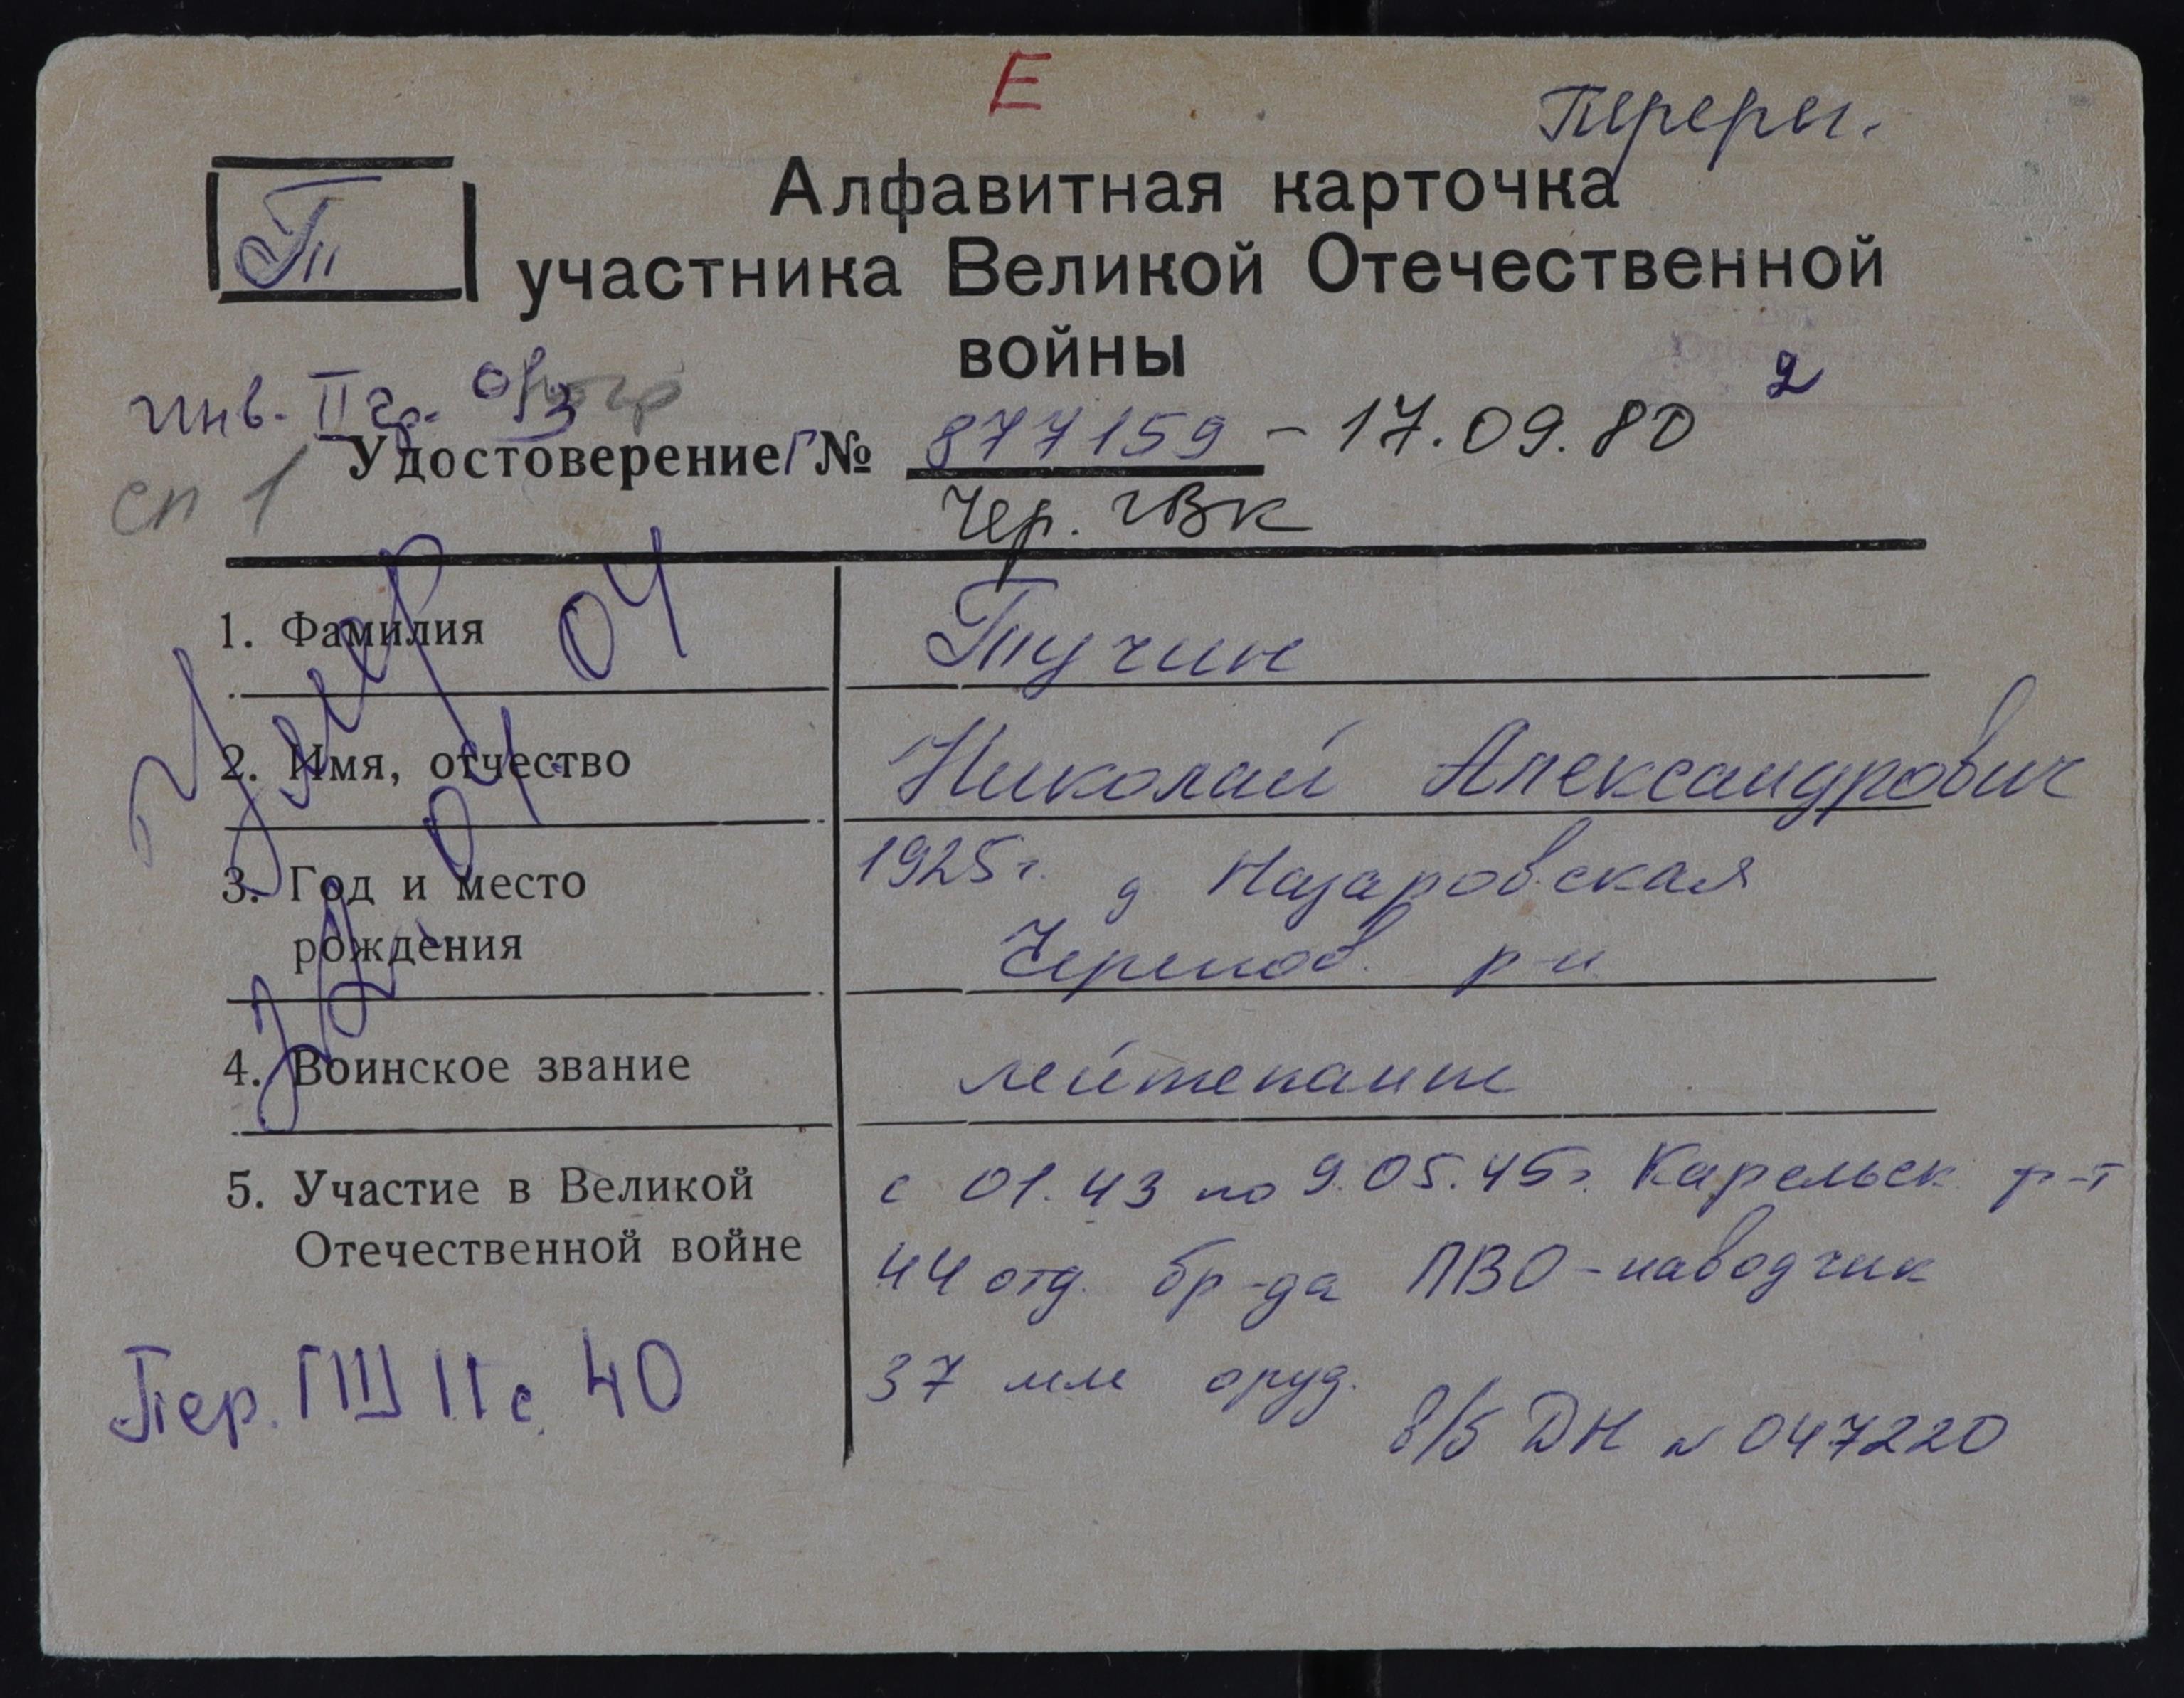 Е
Перерег.
Т
Алфавитная карточка
участника Великой Отечественной
войны
инв. II гр. о/з
Удостоверение Г № 877159 - 17.09.80 2
сп 1
Чер. гВК
1. Фамилия Тучин
Умер 04
2. Имя, отчество Николай Александрович
3. Год и место 1925г. д Назаровская
рождения Черепов. р-н
4. Воинское звание лейтенант
5. Участие в Великой с 01.43 по 9.05.45г. Карельск ф-т
Отечественной войне 44 отд. бр-да ПВО-наводчик
37 мм оруд.
Пер. ПШ II с 40
в/б ДН № 047220